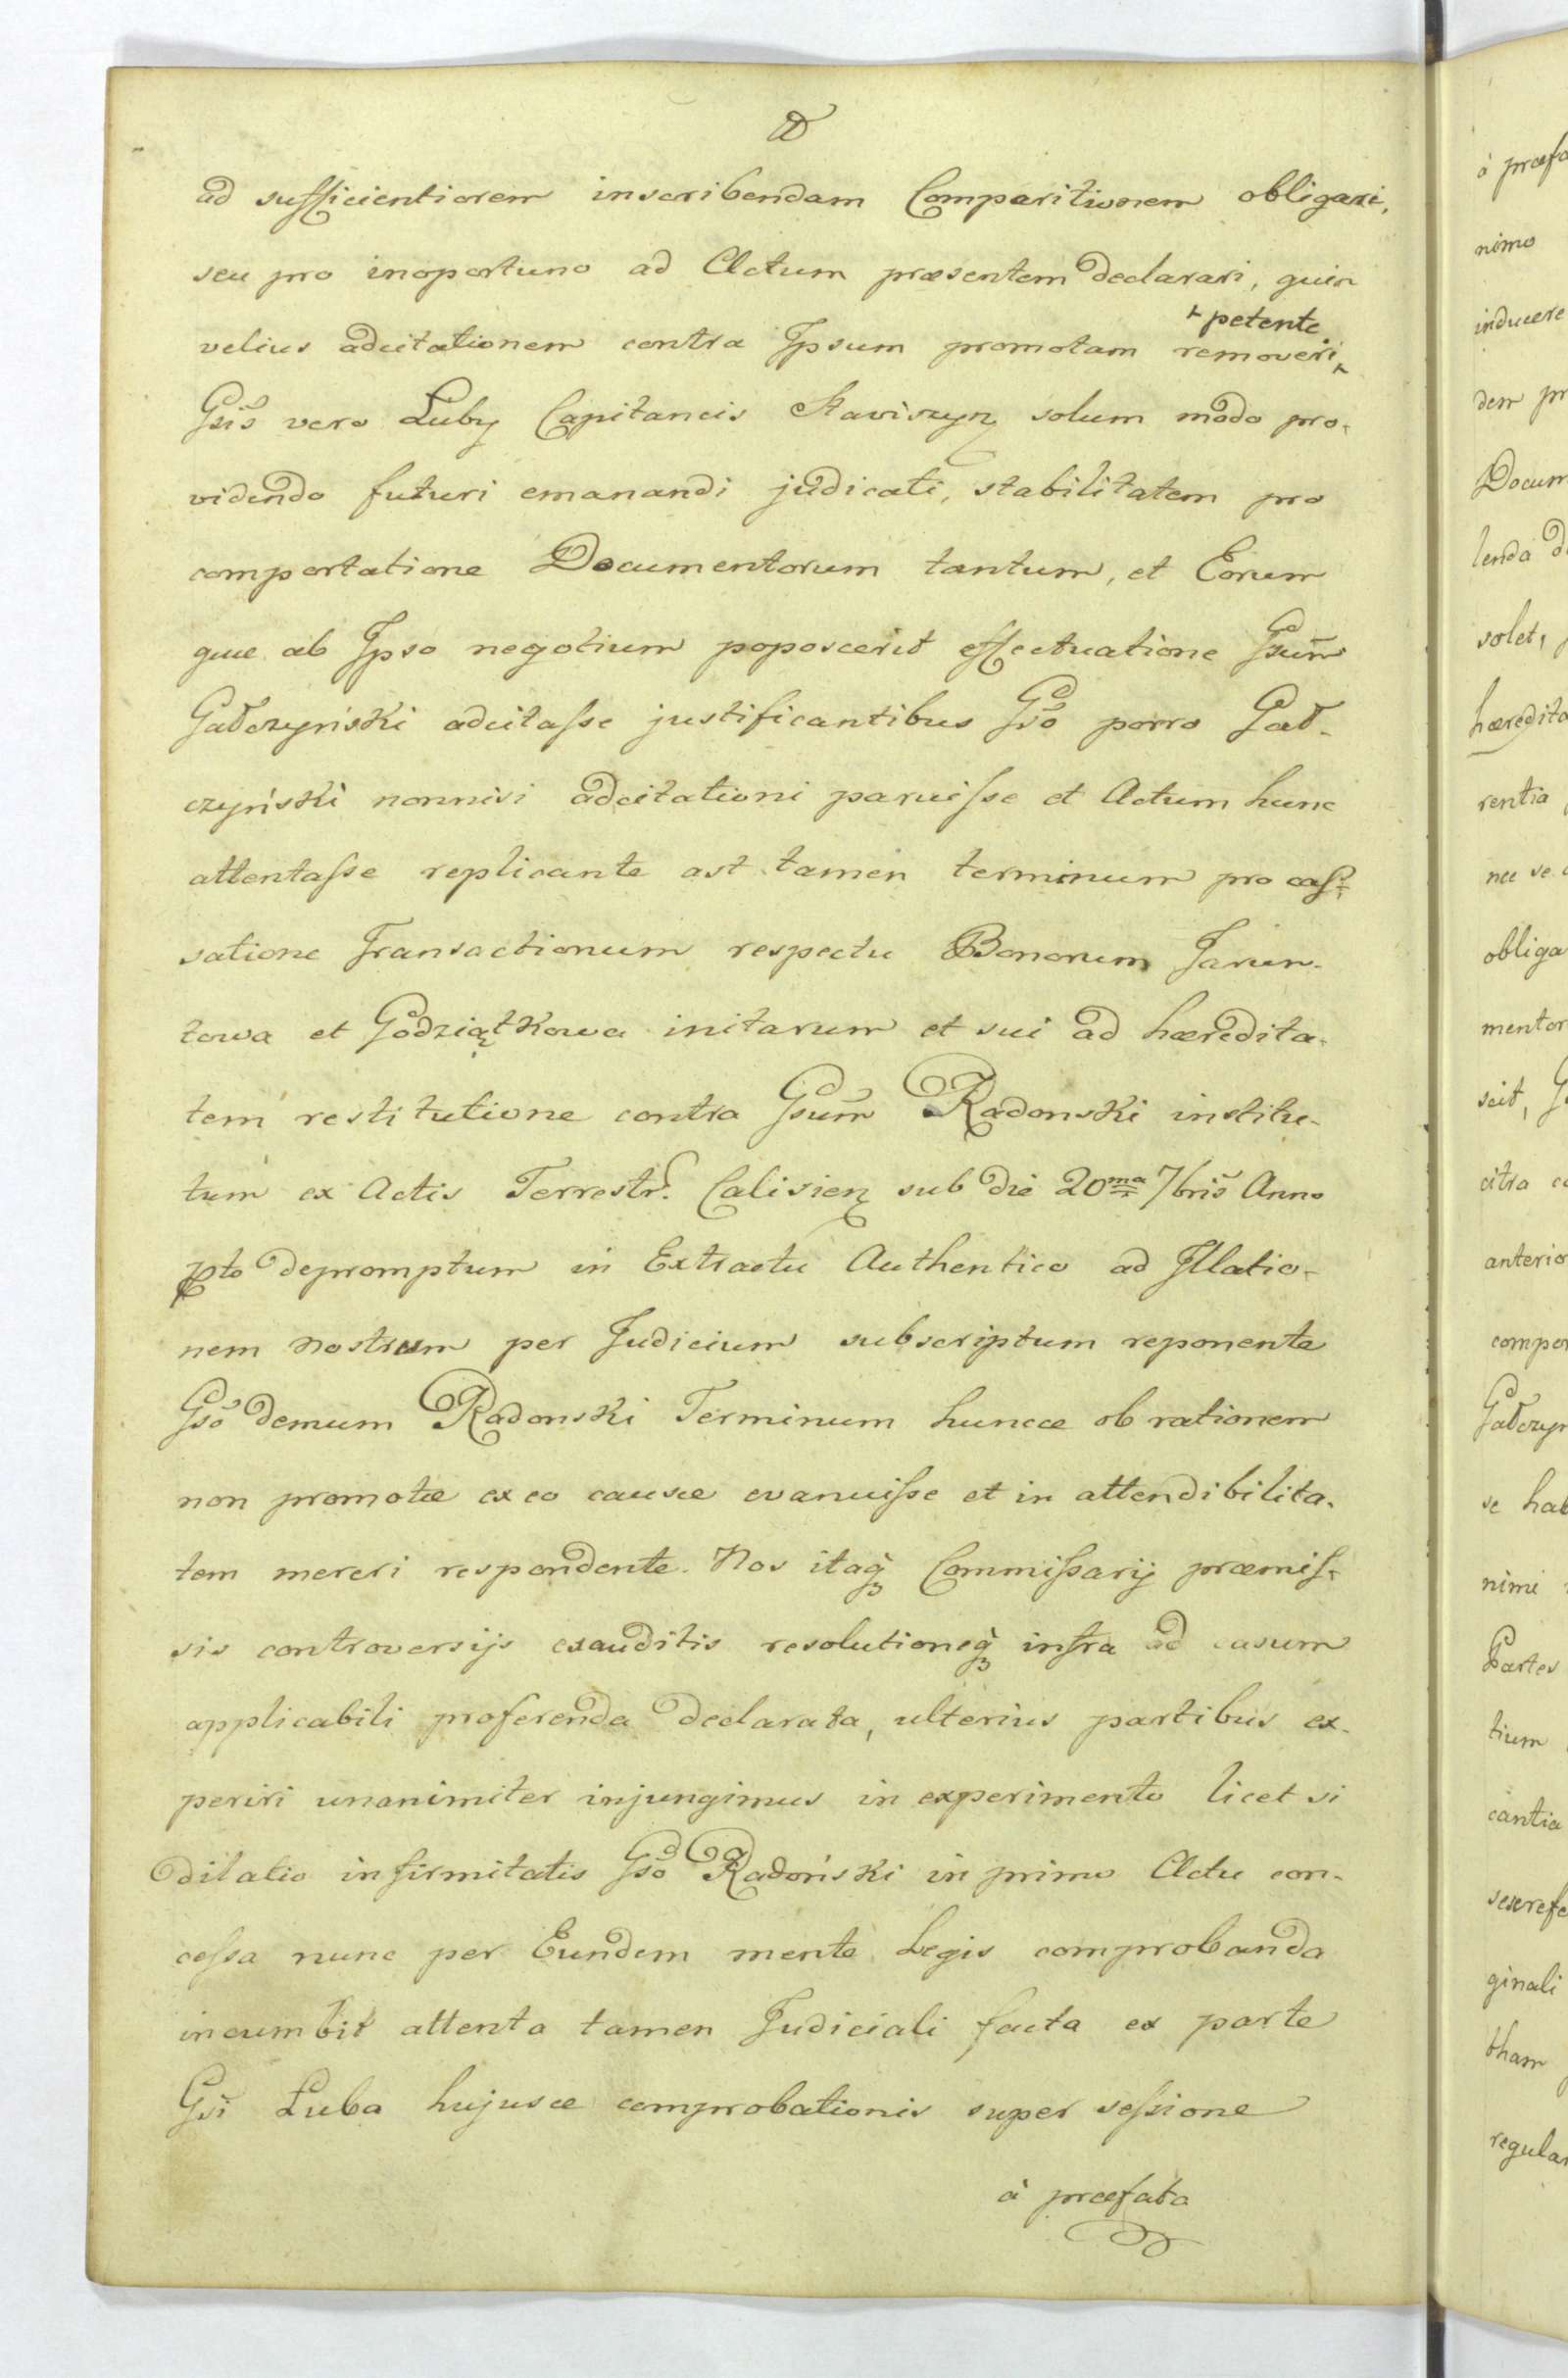 ad sufficientiorem inscribendam Comparitionem obligari,
seu pro inoportuno ad Actum præsentem declarari, quin
velius adcitationem contra Ipsum promotam removeri ⊢ petente
Gsis vero Luby Capitaneis Stawiszyn solum modo pro-
videndo futuri emanandi judicati, stabilitatem pro
comportatione Documentorum tantum, et Eorum
quæ ab Ipso negotium poposcerit effectuatione Gsum
Gałczyński adcitaſse justificantibus Gso porro Gał-
czyński nonnisi adcitationi paruiſse et Actum hunc
attentaſse replicante ast tamen terminum pro caſ-
satione Transactionum respectu Bonorum Jarun-
towa et Godziątkowa initarum et sui ad hæredita-
tem restitutione contra Gsum Radonski institu-
tum ex Actis Terrestr. Calisien sub die 20ma 7bris Anno
pto depromptum in Extractu Authentico ad Illatio-
nem nostram per Judicium subscriptum reponente
Gso demum Radonski Terminum huncce ob rationem
non promotæ ex eo causæ evanuiſse et in attendibilita-
tem mereri respondente. Nos itaq Commiſsarij præmiſ-
sis controversijs exauditis resolutioneq infra ad casum
applicabili proferenda declarata, ulterius partibus ex-
periri unanimiter injungimus in experimento licet si
dilatio infirmitatis Gso Radoński in primo Actu con-
ceſsa nunc per Eundem mente Legis comprobanda
incumbit attenta tamen Judiciali facta ex parte
Gsi Luba hujusce comprobationis super seſsione
à præfata
ò præfa
nimo
inducere
dem pr
Docum
lenda d
solet,
hæredita
rentia
nec se
obliga
mentor
scit, G
citra c
anterio
compor
Gałczyn
se hab
nimi
Partes
tium
cantia
seserefe
ginali
tham
regular